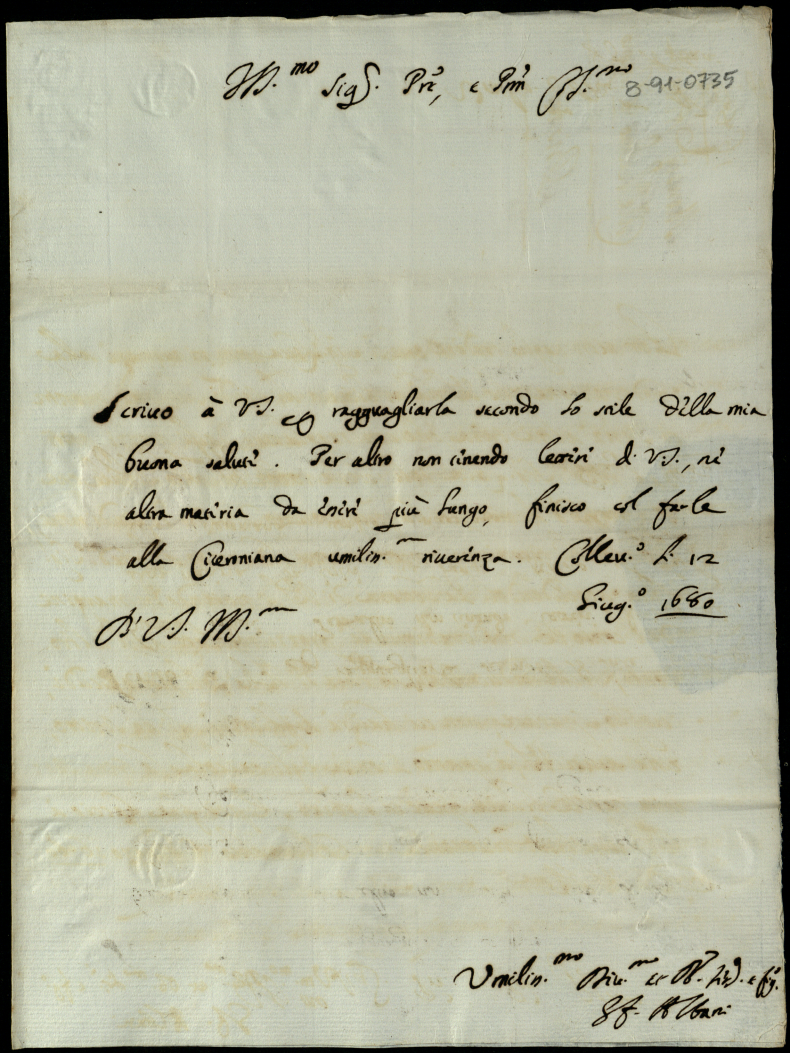 Ill.mo Sig.r P're, e P'ron Col.mo 8-91-0735
Scrivo à V.S. per ragguagliarla secondo lo stile della mia
buona salute. Per altro non tenendo lettere di V.S., nè
altra materia da essere più lungo, finisco col farle
alla Ciceroniana umiliss.ma riverenza. Collev.o li 12
Giug.o 1680
Di V.S. Ill.ma
Umiliss.mo Div.mo et Obb. e fig.o
Albani